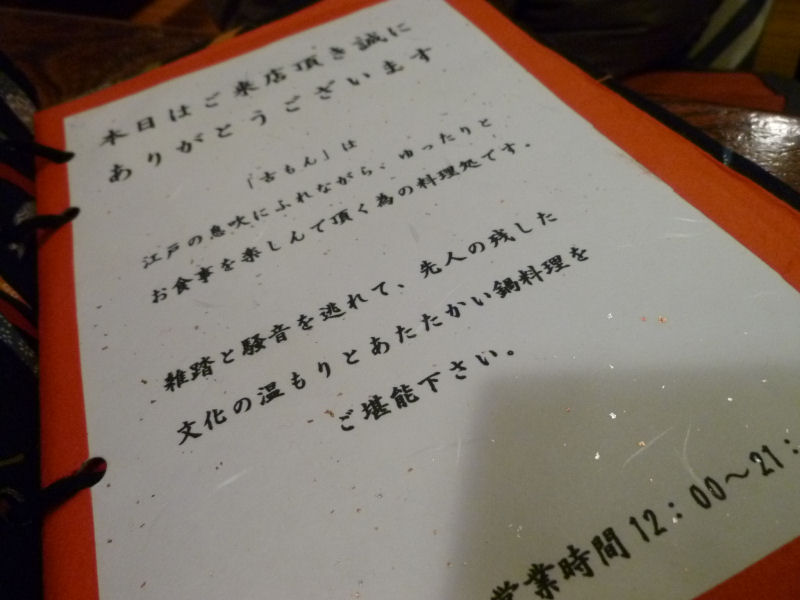 本日はご来店頂き誠に
ありがとうございます
「古もん」は
江戸の息吹にふれながら、ゆったりと
お食事を楽しんで頂く為の料理処です。
雑踏と騒音を逃れて、先人の残した
文化の温もりとあたたかい鍋料理を
ご堪能下さい。
営業時間12:00〜21: